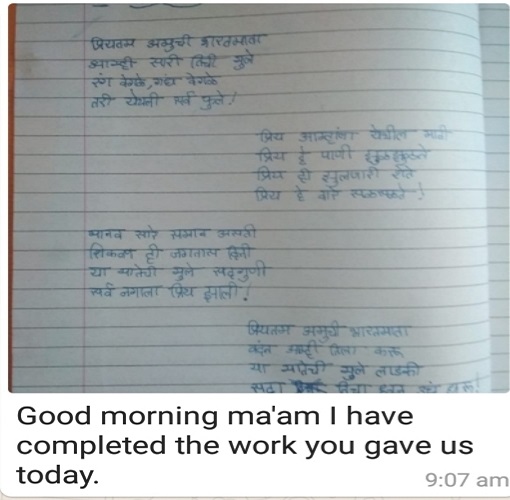 प्रियतम अमुची भारतमाता
आम्ही सारी तिची मुले
रंग वेगळे, गंध वेगळे
तरी येथली सर्व फुले!
प्रिय आम्हांला येथील माती
प्रिय हे पाणी झुळझुळते
प्रिय ही झुलणारी शेते
प्रिय हे वारे सळसळते!
मानव सारे समान असती
शिकवण ही जगतास दिली
या मातेची मुले सद्गुणी
सर्व जगाला प्रिय झाली!
प्रियतम अमुची भारतमाता
वंदन आम्ही तिला करू
या मातेची मुले लाडकी
सदा तिचा
Good morning ma'am I have
completed the work you gave us
today.
9:07 am